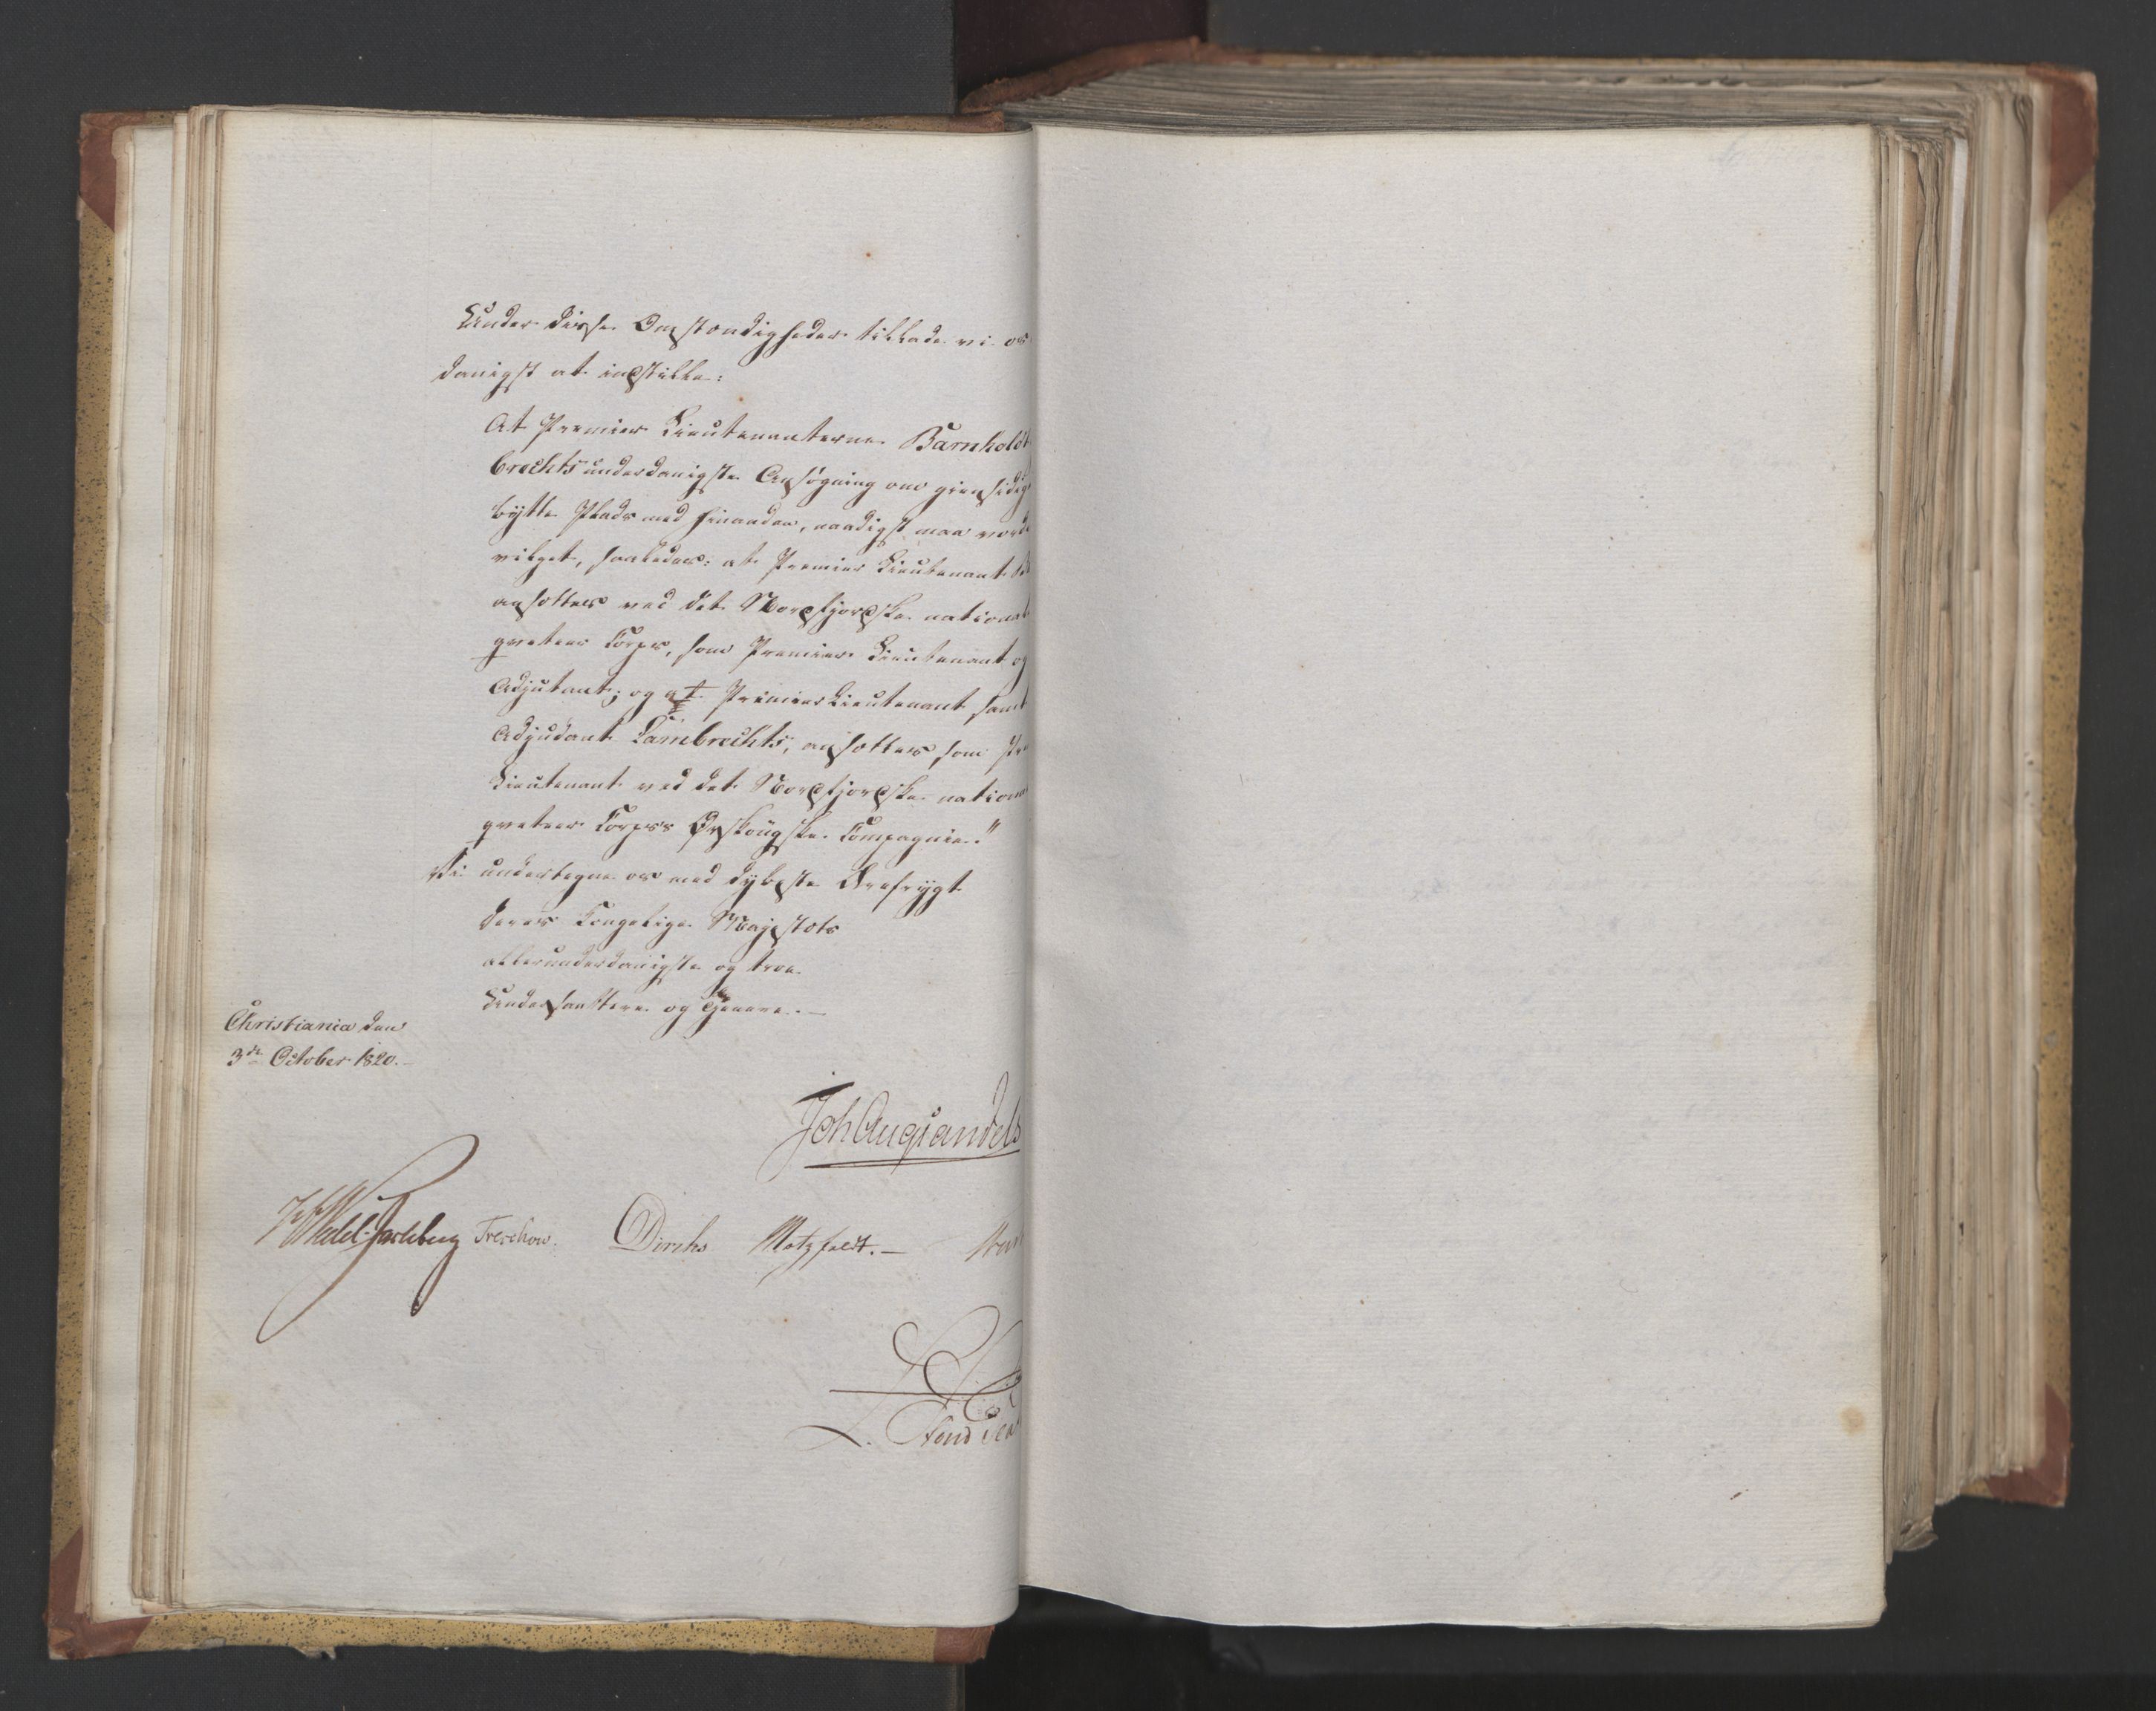 Under disse Omstændigheder tillade vi os
danigst at indstille:
At Premier Lieutenanterne Barnholdt
brechts underdanigste Ansøgning om giensidig
bytte Plads med hinanden, naadigst maa vorde
vilget, saaledes: at Premier Lieutenant
ansættes ved det Nordfjordske national
geveteer Corps, som Premier Lieutenant og
Adjutant; og at Premier Lieutenant samt
Adjudant Lambrechts, ansættes som Pre
Lieutenant ved det Nordfjordske nationa
geveteer Corpses Ørskougske Compagnie."
Vi undertegne os med dybeste Ærefrygt
Deres Kongelige Majestæts
allerunderdanigste og troe
Undersaattere og Tjenere.—
Christiania den
3de October 1820.—
Joh Aug Sandels
Wedel-Jarlsberg Treschow. Diriks Motzfeldt.—